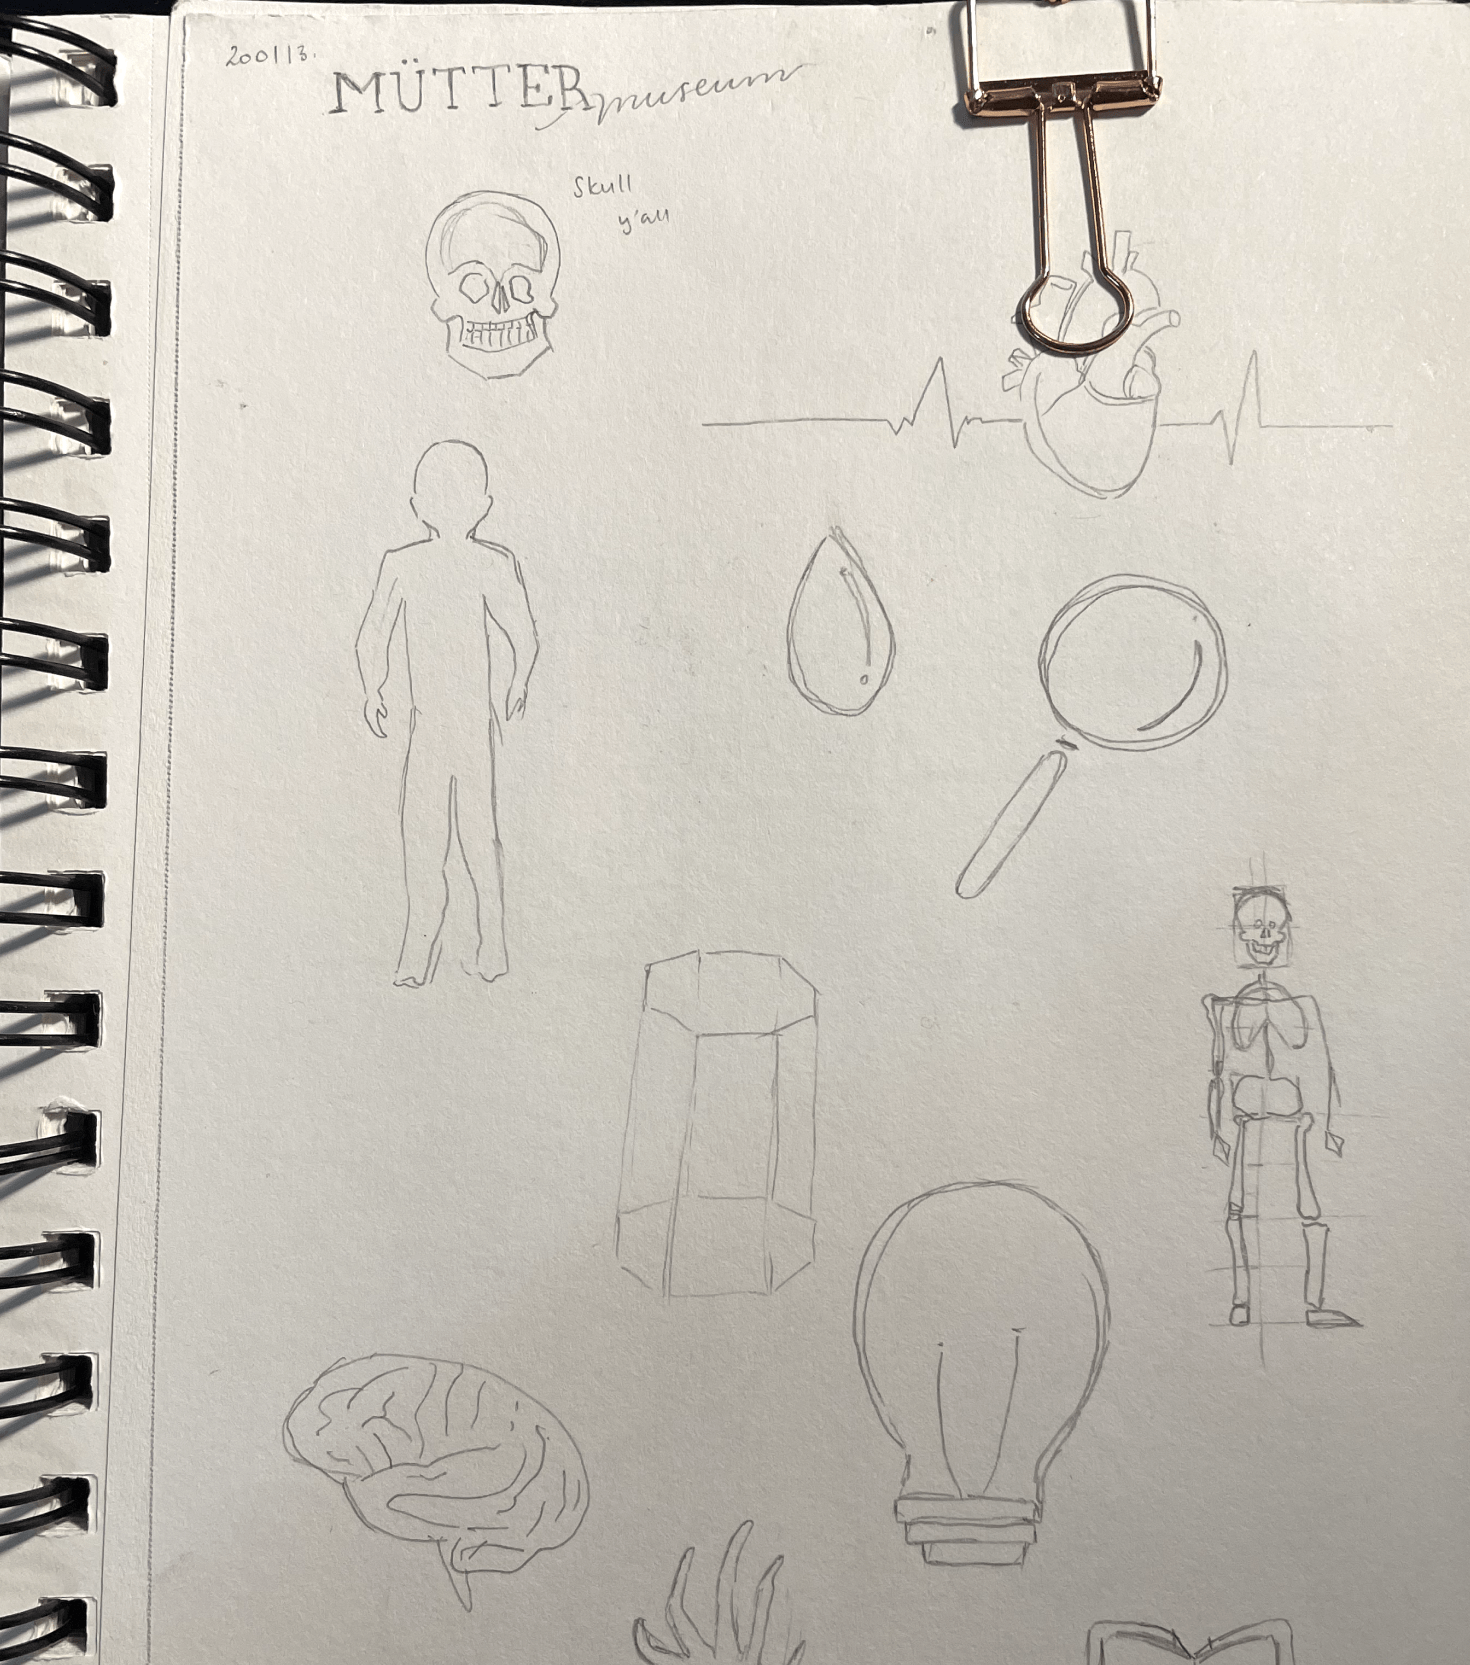 200113.
MÜTTER museum
Skull
y'all